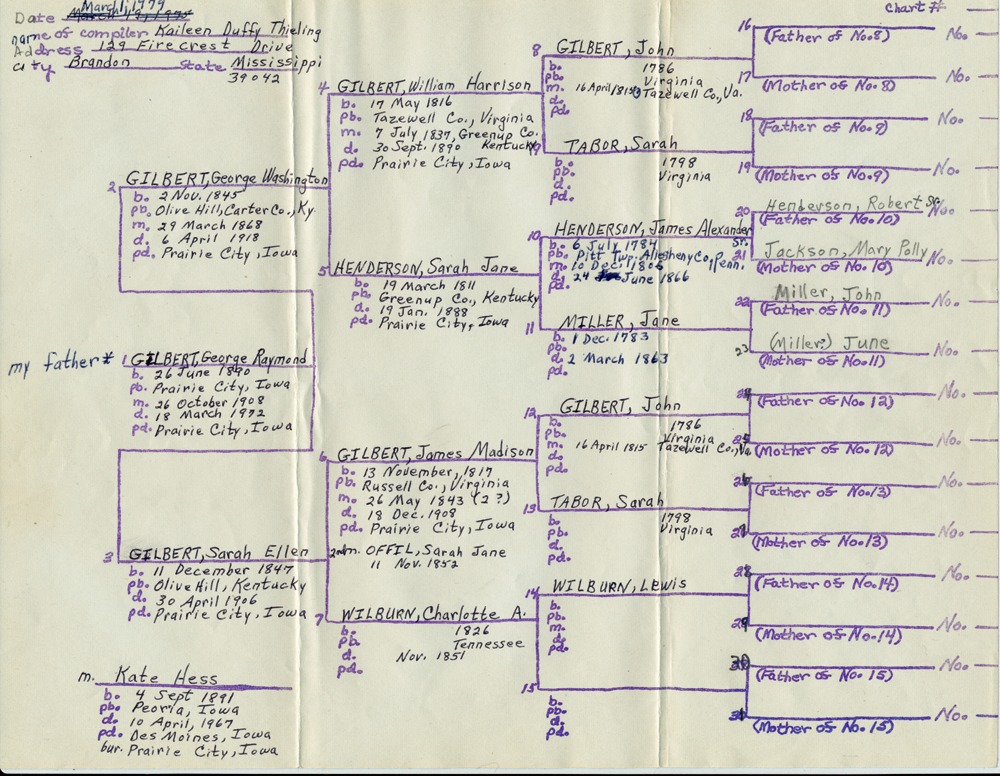 March 1, 1979
Date
name of compiler Kaileen Duffy Thieling
Address 129 Firecrest Drive
City Brandon State Mississippi
39042
Chart #
my father* 1 GILBERT, George Raymond
b. 26 June 1890
pb. Prairie City, Iowa
m. 26 October 1908
d. 18 March 1972
pd. Prairie City, Iowa
m. Kate Hess
b. 4 Sept 1891
pb. Peoria, Iowa
d. 10 April, 1967
pd. Des Moines, Iowa
bur. Prairie City, Iowa
2 GILBERT, George Washington
b. 2 Nov. 1845
pb. Olive Hill, Carter Co., Ky.
m. 29 March 1868
d. 6 April 1918
pd. Prairie City, Iowa
3 GILBERT, Sarah Ellen
b. 11 December 1847
pb. Olive Hill, Kentucky
d. 30 April 1906
pd. Prairie City, Iowa
4 GILBERT, William Harrison
b. 17 May 1816
pb. Tazewell Co., Virginia
m. 7 July 1837, Greenup Co.
Kentucky
d. 30 Sept. 1890
pd. Prairie City, Iowa
5 HENDERSON, Sarah Jane
b. 19 March 1811
pb. Greenup Co., Kentucky
d. 19 Jan. 1888
pd. Prairie City, Iowa
6 GILBERT, James Madison
b. 13 November, 1817
pb. Russell Co., Virginia
m. 26 May 1843 (2?)
d. 18 Dec. 1908
pd. Prairie City, Iowa
2nd m. OFFIL, Sarah Jane
11 Nov. 1852
7 WILBURN, Charlotte A.
b. 1826
pb. Tennessee
d. Nov. 1851
pd.
8 GILBERT, John
b. 1786
pb. Virginia
m. 16 April 1815 Tazewell Co., Va.
d.
pd.
9 TABOR, Sarah
b. 1798
pb. Virginia
d.
pd.
10 HENDERSON, James Alexander
Sr.
b. 6 July 1784
pb. Pitt Twp. Allegheny Co., Penn.
m. 10 Dec. 1806
d. 24 June 1866
pd.
11 MILLER, Jane
b. 1 Dec. 1783
pb.
d. 2 March 1863
pd.
12 GILBERT, John
b. 1786
pb. Virginia
m. 16 April 1815 Tazewell Co., Va.
d.
pd.
13 TABOR, Sarah
b. 1798
pb. Virginia
d.
pd.
14 WILBURN, Lewis
b.
pb.
m.
d.
pd.
15
b.
pb.
d.
pd.
16 No.
(Father of No. 8)
17 No.
(Mother of No. 8)
18 No.
(Father of No. 9)
19 No.
(Mother of No. 9)
20 Henderson, Robert Sr. No.
(Father of No. 10)
21 Jackson, Mary Polly No.
(Mother of No. 10)
22 Miller, John No.
(Father of No. 11)
23 (Miller?) June No.
(Mother of No. 11)
24 No.
(Father of No. 12)
25 No.
(Mother of No. 12)
26 No.
(Father of No. 13)
27 No.
(Mother of No. 13)
28 No.
(Father of No. 14)
29 No.
(Mother of No. 14)
30 No.
(Father of No. 15)
31 No.
(Mother of No. 15)